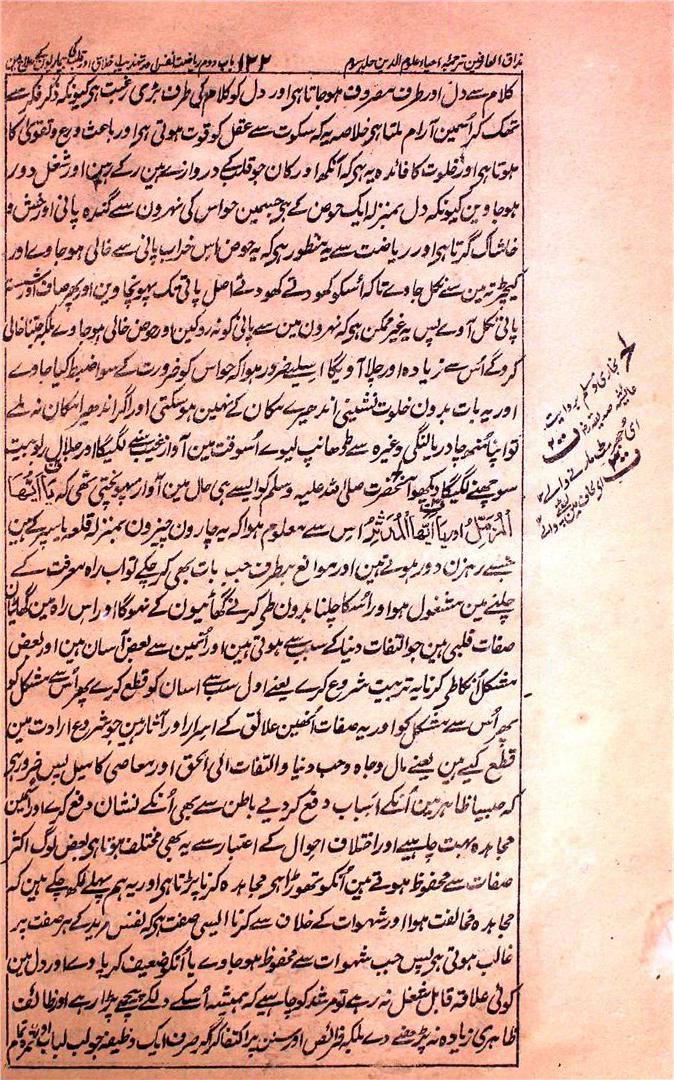 مذاق العارفین ترجمہ احیاء علوم الدین جلد سوم ۱۲۲ باب دوم ریاضت نفس اور تہذیب اخلاق اور قلب کی بیماریوں کے علاج مین
کلام سے دل اور طرف مصروف ہوجاتا ہی اور دل کو کلام کی طرف بڑی رغبت ہی کیونکہ ذکر و فکر سے
تھک کر اُسمین آرام ملتا ہی خلاصہ یہ کہ سکوت سے عقل کو قوت ہوتی ہی اور باعث ورع و تقویٰ کا
ہوتا ہی اور خلوت کا فائدہ یہ ہی کہ آنکھ اور کان جو قلب کے دروازے ہین رکے رہین اور شغل دور
ہوجاوین کیونکہ دل بمنزلہ ایک حوض کے ہی جسمین حواس کی نہرون سے گندہ پانی اور خس و
خاشاک گرتا ہی اور ریاضت سے یہ منظور ہی کہ یہ حوض اس خراب پانی سے خالی ہوجاوے اور
کیچڑ تہ مین سے نکل جاوے تاکہ اُسکو کھودتے کھودتے اصل پانی تک پہونچاوین اور پھر صاف اور شستہ
پانی نکل آوے پس یہ غیر ممکن ہی کہ نہرون مین سے پانی کو نہ روکین اور حوض خالی ہوجاوے بلکہ جتنا خالی
کروگے اُس سے زیادہ اور چلا آویگا اسلیے ضرور ہوا کہ حواس کو ضرورت کے سوا ضبط کیا جاوے
اور یہ بات بدون خلوت نشینی اندھیرے مکان کے نہین ہوسکتی اور اگر اندھیرا مکان نہ ملے
تو اپنا منھ چادر یا لنگی وغیرہ سے ڈھانپ لیوے اُسوقت مین آواز غیب سننے لگیگا اور جلال ربوبیت
سوجھنے لگیگا دیکھو آنحضرت صلی اللہ علیہ وسلم کو ایسے ہی حال مین آواز پہونچی تھی کہ یَا اَیُّھَا
الْمُزَّمِّلُ اور یَا اَیُّھَا الْمُدَّثِّرُ اس سے معلوم ہوا کہ یہ چارون چیزون بمنزلہ قلعہ یا سپر کے ہین
جسے رہزن دور ہوتے ہین اور موانع برطرف جب یہ بات بھی کرچکے تو اب راہ معرفت کے
چلنے مین مشغول ہو اور اُسکا چلنا بدون طی کرنے گھاٹیون کے نہوگا اور اس راہ مین گھاٹیان
صفات قلبی ہین جو التفات دنیا کے سبب سے ہوتی ہین اور اُنمین سے بعض آسان ہین اور بعض
مشکل اُنکا طی کرنا یہ ترتیب شروع کرے یعنے اول سب سے آسان کو قطع کرے پھر اُس سے مشکل کو
پھر اُس سے مشکل کو اور یہ صفات اُنھین علائق کے اسرار اور آثار ہین جو شروع ارادت مین
قطع کیے ہین یعنے مال و جاہ و حب دنیا و التفات الی الخلق اور معاصی کا میل پس ضرور ہی
کہ جیسا ظاہر مین اُنکے اسباب دفع کردیے باطن سے بھی اُنکے نشان دفع کرے اور اسمین
مجاہدہ بہت چاہیے اور اختلاف احوال کے اعتبار سے یہ بھی مختلف ہوتا ہی بعض لوگ اکثر
صفات سے محفوظ ہوتے ہین اُنکو تھوڑا ہی مجاہدہ کرنا پڑتا ہی اور یہ ہم پہلے لکھ چکے ہین کہ
مجاہدہ مخالفت ہوا اور شہوات کے خلاف سے کرنا ایسی صفت ہی کہ نفس مرید کے ہر صفت پر
غالب ہوتی ہی پس جب شہوات سے محفوظ ہوجاوے یا اُنکو ضعیف کریا دے اور دل مین
کوئی علاقہ قابل شغل نہ رہے تو مرشد کو چاہیے کہ ہمیشہ اُسکے دل کے پیچھے پڑا رہے اور وظائف
ظاہری زیادہ نہ پڑھنے دے بلکہ فرائض اور سنن پر اکتفا کرکے صرف ایک وظیفہ جو لب لباب اور ثمرہ تمام
بخاری و مسلم بروایت
عائشہ صدیقہ رض